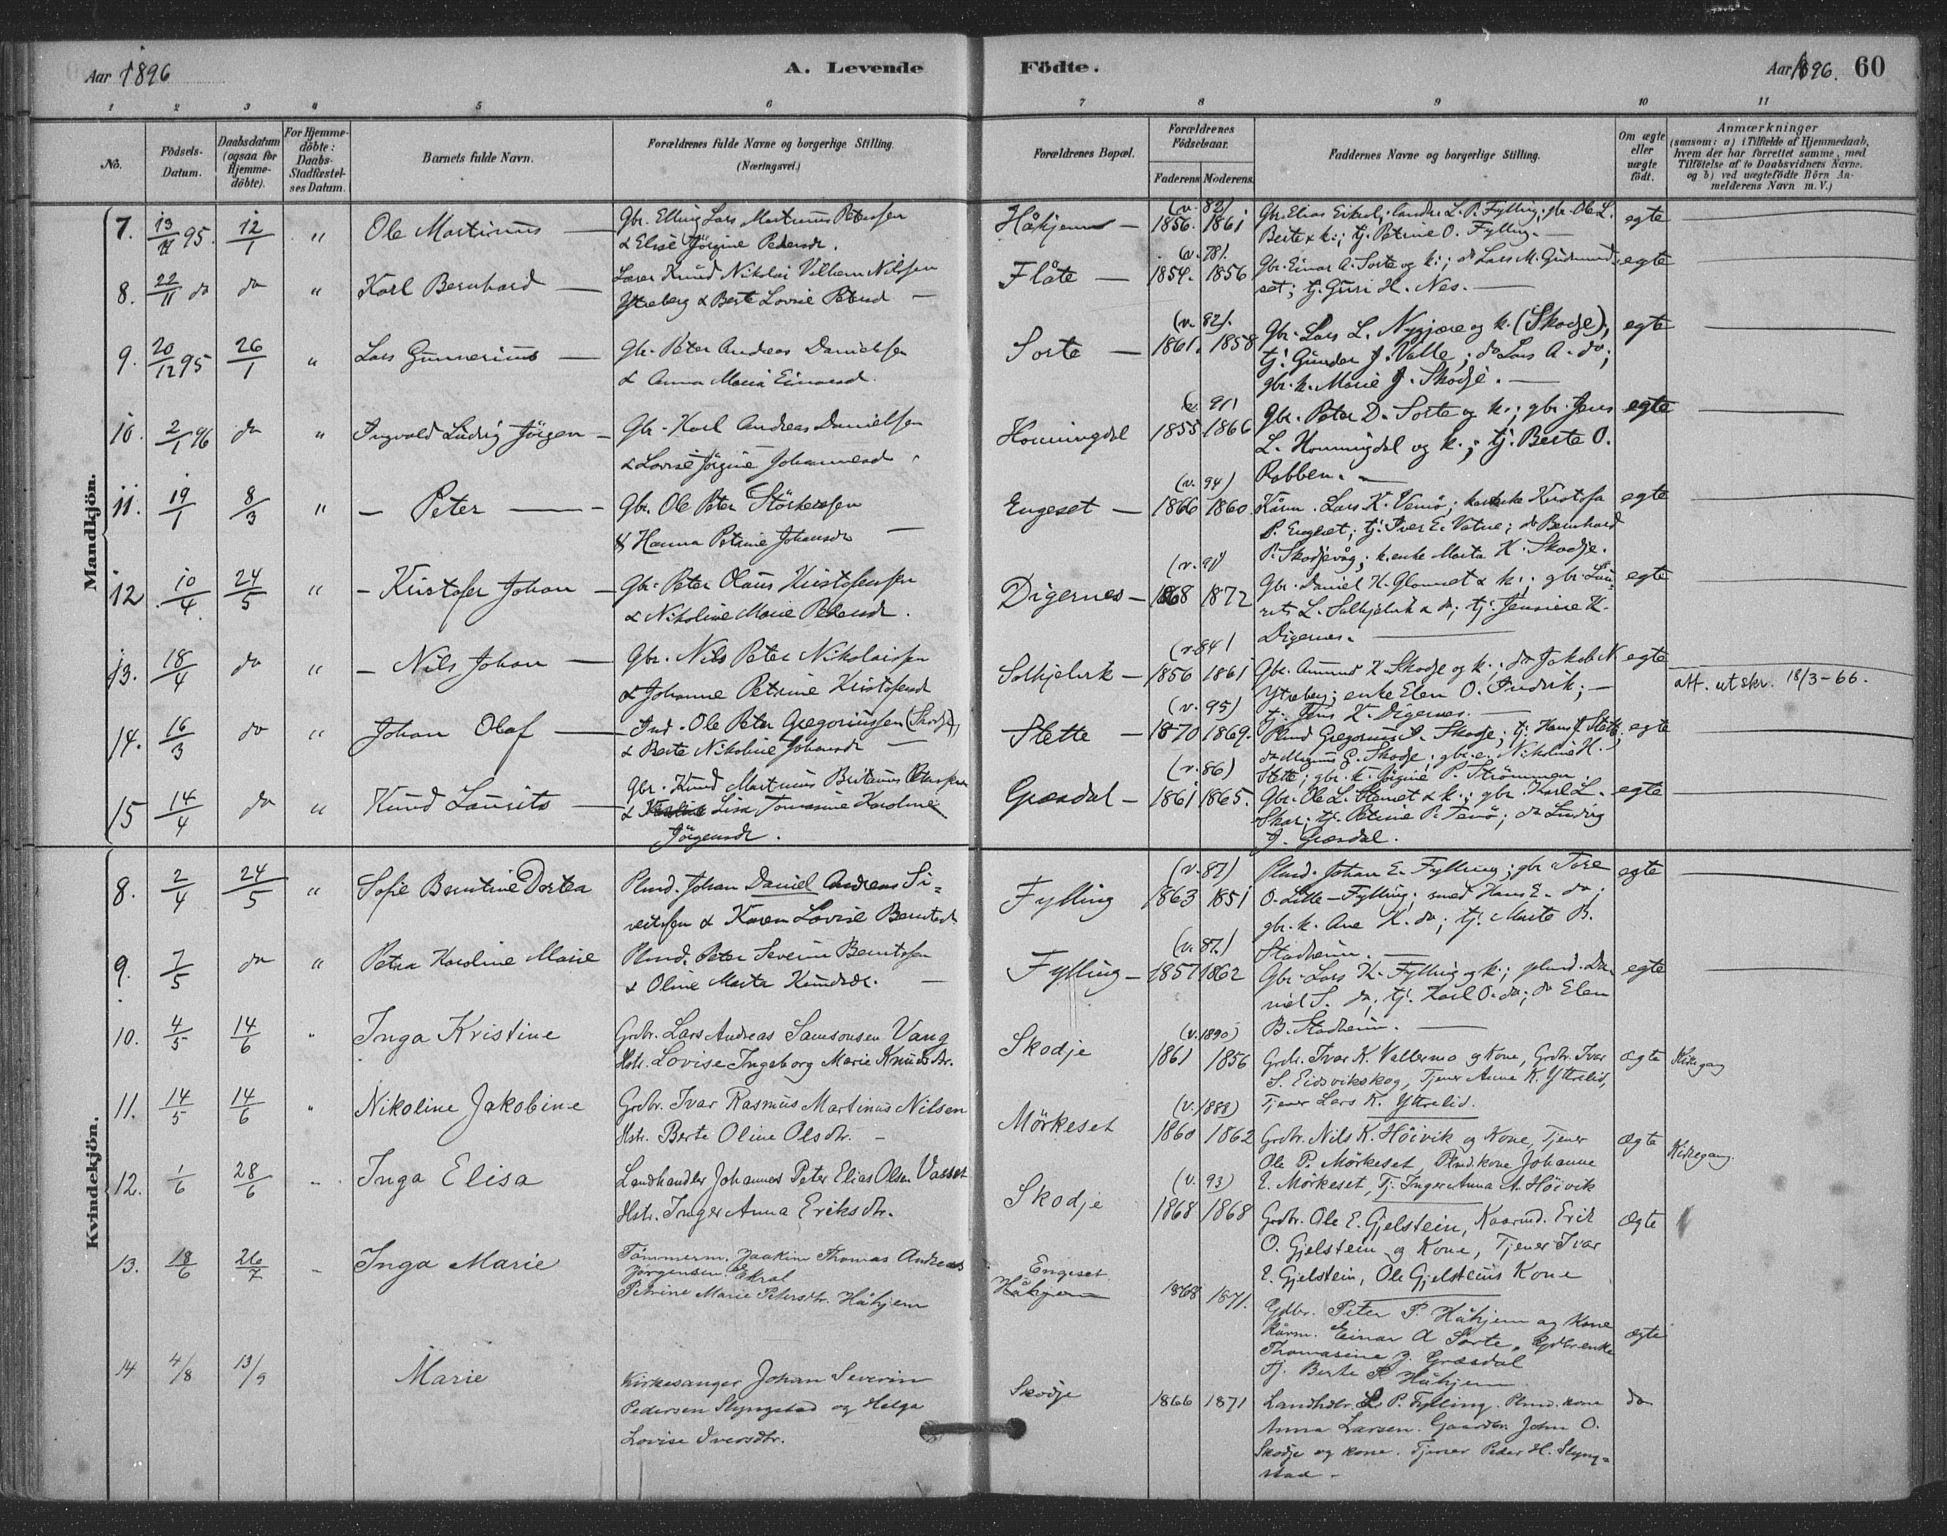 Aar 1896
A. Levende
Födte.
Aar 1896. 60
1 2 3 4 5 6 7 8 9 10 11
No.
Födsels-Datum.
Daabsdatum (ogsaa for Hjemme-döbte).
For Hjemme-döbte: Daabs-Stadfæstel-ses Datum.
Barnets fulde Navn.
Forældrenes fulde Navne og borgerlige Stilling.
(Næringsvei.)
Forældrenes Bopæl.
Forældrenes Födselsaar.
Faderens Moderens.
Faddernes Navne og borgerlige Stilling.
Om ægte eller uægte födt.
Anmærkninger
(saasom: a) i Tilfælde af Hjemmedaab, hvem der har forrettet samme, med Tilföielse af to Daabsvidners Navne, og b) ved uægtefödte Börn An-melderens Navn m. V.)
Mandkjön.
7. 13/11 95. 12/1 " Ole Martinus —
Gbr. Elling Lars Martinus Petersen
& Elise Jörgine Pedersdr.
Håhjem — (v. 82). 1856. 1861.
Gbr. Elias Eikrol; Andr. L. P. Fylling; gbr. Ole L.
Berte & k.; tj. Petrine O. Fylling. —
egte
8. 22/11 do do " Karl Bernhard —
Lærer Knud Nikolai Vilhem Nilsen
Ytreberg & Berte Lovise Petersd —
Flåte — (v. 78). 1854. 1856
Gbr. Einar A. Sorte og k.; do Lars M. Gudmund-
set; tj. Guri H. Nes. —
egte
9. 20/12 95 26/1 " Lars Gunnerius —
Gbr. Peter Andreas Danielsen
& Anna Maria Einarsd.
Sorte — (v. 82). 1861. 1858
Gbr. Lars L. Nygjære og k. (Skodje);
tj. Gunder J. Valle; do Lars A. do;
gbr. k. Marie J. Skodje. —
egte
10. 2/1 96 do " Ingvald Ludvig Jörgen —
Gbr. Karl Andreas Danielsen
& Lovise Jörgine Johannesd
Honningdal (v. 91) 1855 1866
Gbr. Peter D. Sorte og k.; gbr. Jens
L. Honningdal og k.; tj. Berte O.
Robben. —
egte
11. 19/1 8/3 " — Peter —
Gbr. Ole Peter Störkersen
& Hanna Petrine Johansdr —
Engeset — (v. 94) 1866 1860
Kårm. Lars K. Vemö; Kristofa
P. Engeset; tj. Iver E. Vatne; do Bernhard
P. Skodjevåg; k. enke Marta K. Skodje.
egte
12 10/4 24/5 " — Kristofer Johan —
Gbr. Peter Olaus Kristofersen
& Nikoline Marie Petersd.
Digernes — (v. 91) 1868 1872
Gbr. Daniel K. Glomset & k.; gbr. Lau-
rits L. Solhjelvik & do; tj. K.
Digernes. —
egte
13. 18/4 do " — Nils Johan —
Gbr. Nils Peter Nikolaisen
& Johanne Petrine Kristofersd
Solhjelvik — (v. 84) 1856 1861
Gbr. Amund K. Skodje og k.; do Jakob N.
Ytreberg; enke Elen O. Indvik; —
tj. Jens K. Digernes. —
egte
att. utskr. 18/3-66.
14. 16/3 do " Johan Olaf —
Ind. Ole Peter Gregoriussen (Skodje)
& Berte Nikoline Johansdr —
Stette — (v. 95) 1870 1869.
Plmd Gregorius A. Skodje; tj. Hans J. Stette;
do Magnus G. Skodje; gbr. e. Nikoline H.
Stette; gbr. k. Jörgine P. Strömmen.
egte
15 14/4 do " Knud Laurits —
Gbr. Knud Martinus Britanus Petersen
& Lisa Tomasine Karoline
Jörgensdr.
Græsdal — (v. 86) 1861 1865.
Gbr. Ole L. Stemet & k.; gbr. Karl L.
Skar; tj. Petrine P. Temö; do Ludvig
J. Græsdal.
egte
Kvindekjön.
8. 2/4 24/5 " Sofie Berntine Dortea
Plmd. Johan Daniel Andreas Si-
vertsen & Karen Lovise Berntsd.
Fylling (v. 87) 1863 1851
Plmd. Johan E. Fylling; gbr. Tore
O. Lille-Fylling; smed Hans E. do;
gbr. k. Ane K. do; tj. Marte B.
Stadheim. —
egte
9. 7/5 do " Petra Karoline Marie
Plmd. Peter Severin Berntsen
& Oline Marta Knudsdr. —
Fylling — (v. 87.) 1857 1862
Gbr. Lars K. Fylling og k.; plmd. Da-
niel S. do; tj. Karl O. do; do Elen
B. Stadheim. —
egte
10. 4/5 14/6 " Inga Kristine
Grdbr. Lars Andreas Samsonsen Vang
Hstr. Lovise Ingeborg Marie Knudsdtr.
Skodje (v. 1890) 1861 1856
Grdr. Ivar K. Vallermo og Kone, Grdbr. Ivar
S. Eidsvikskog, Tjener Anne K. Ytterlid,
Tjener Lars K. Ytterlid.
ægte
Kirkegang
11. 14/5 14/6 " Nikoline Jakobine
Grdbr. Ivar Rasmus Martinus Nilsen
Hstr. Berte Oline Olsdtr. —
Mörkeset (v. 1888) 1860 1862
Grdbr. Nils K. Höivik og Kone, Tjener
Ole P. Mörkeset, Plmd. kone Johanne
E. Mörkeset, Tj. Inger Anna A. Höivik
ægte
Kirkegang.
12. 1/6 28/6 — Inga Elisa
Landhandler Johannes Peter Elias Olsen Vasset
Hstr. Inger Anna Eriksdtr.
Skodje (v. 93) 1868 1868
Grdbr. Ole E. Gjelstein, Kaarmd. Erik
O. Gjelstein og Kone, Tjener Ivar
E. Gjelstein, Ole Gjelsteins Kone
ægte
13. 18/6 26/7 — Inga Marie
Tömmerm. Joakim Thomas Andreas
Jörgensen Ekrol
Petrine Marie Petersdtr. Håhjem
Engeset
Håhjem 1868 1871.
Grdbr. Peter P. Håhjem og Kone
Kårm. Einar A Sorte, Grdbr. enke
Thomasine J. Græsdal
Tj. Berte P. Håhjem
ægte
14 4/8 13/9 Marie
Kirkesanger Johan Severin
Pedersen Slyngstad og Helga
Lovise Iversdtr.
Skodje 1866 1871
Landhdlr. L. P. Fylling. Plmd. kone
Anna Larsen. Gaardbr. John O.
Skodje og kone. Tjener Peder H. Slyng-
stad —
do